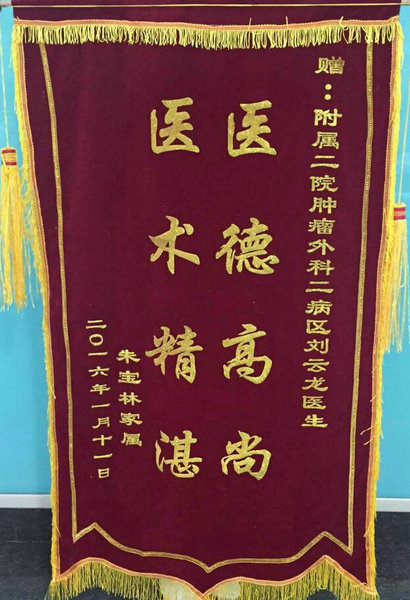 赠：附属二院肿瘤外科二病区刘云龙医生
医德高尚
医术精湛
朱宝林家属
二〇一六年一月十一日